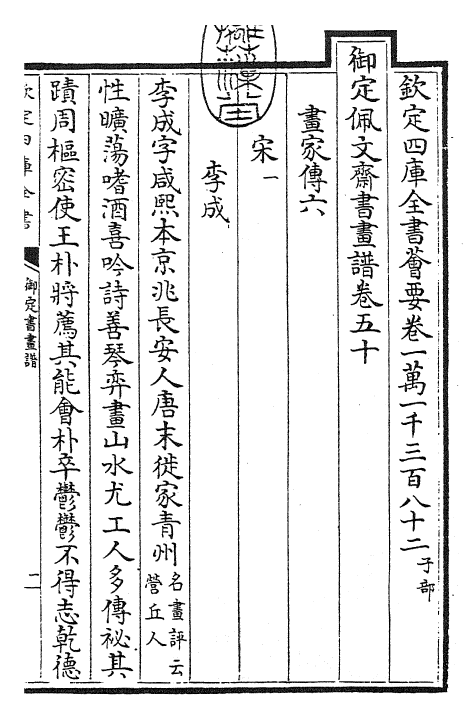 欽定四庫全書薈要卷一萬一千三百八十二 子部
御定佩文齋書畫譜卷五十
畫家傳六
宋一
李成
李成字咸熙本京兆長安人唐末徙家青州 名畫評云營丘人
性曠蕩嗜酒喜吟詩善琴弈畫山水尤工人多傳祕其
蹟周樞密使王朴將薦其能會朴卒鬱鬱不得志乾德
欽定四庫全書
御定書畫譜